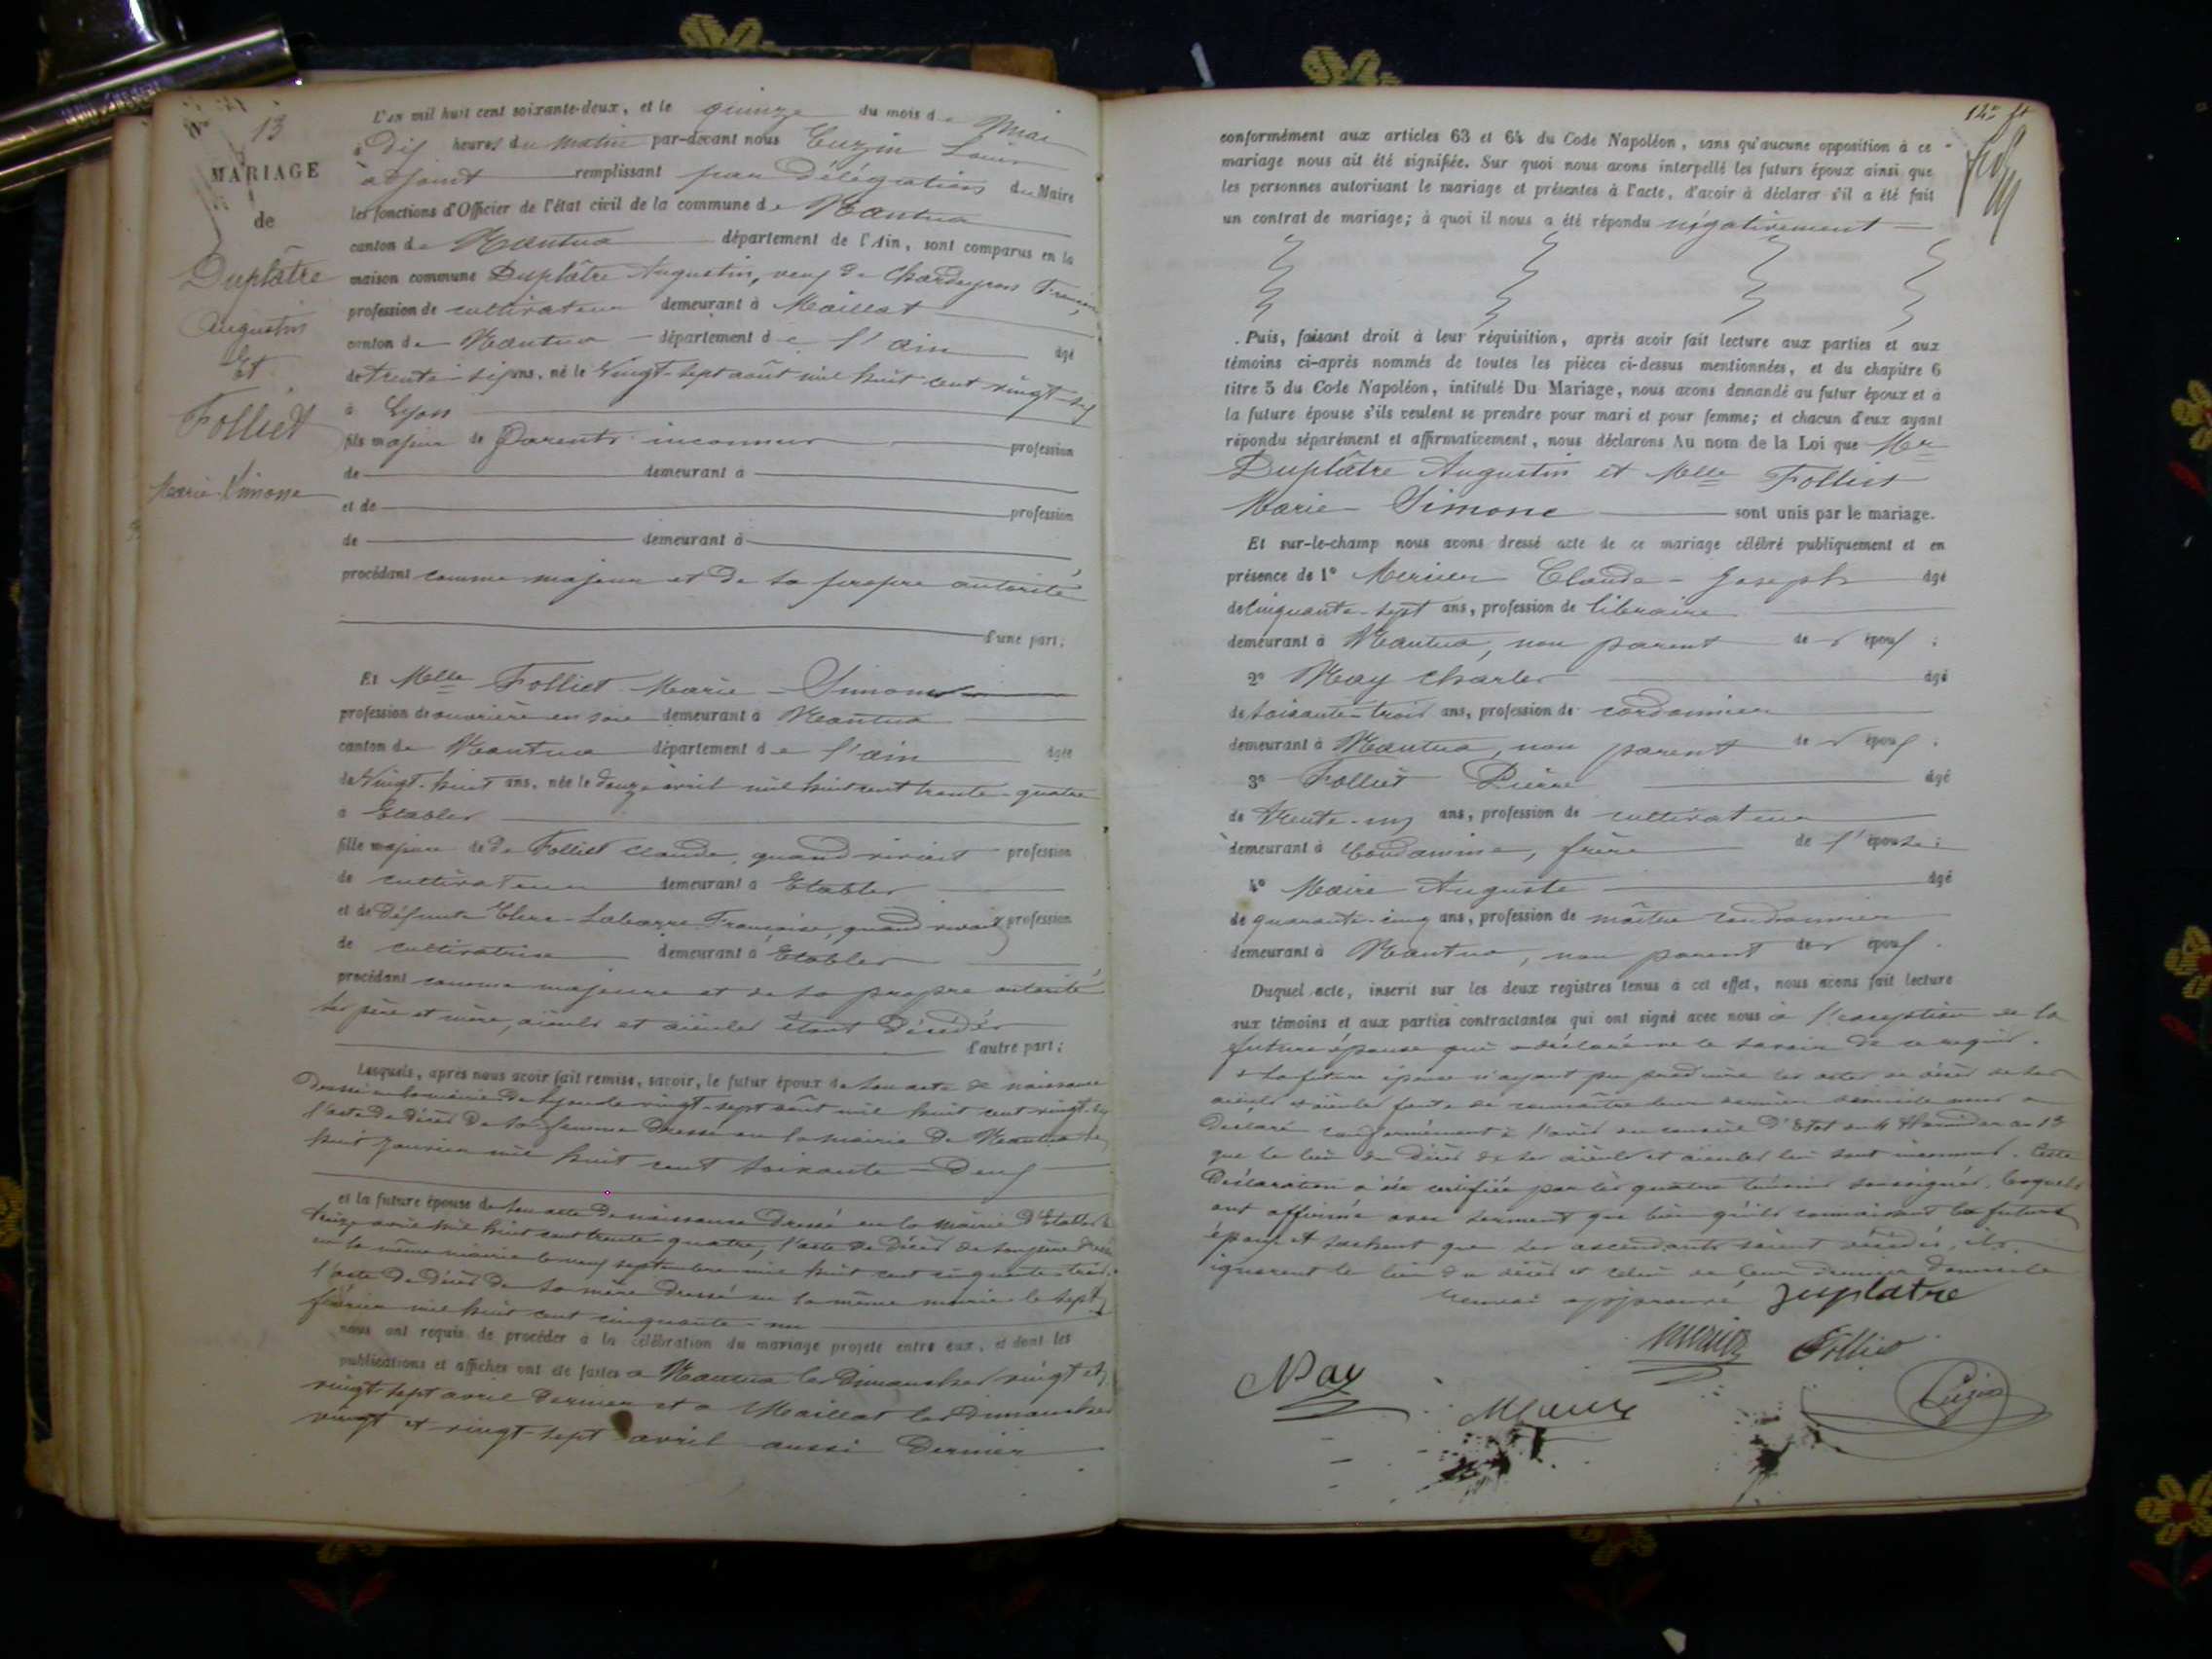 N° 13
MARIAGE
de
Duplâtre
Augustin
Et
Folliet
Marie-Simone
L'an mil huit cent soixante-deux, et le quinze du mois de Mai
à dix heures du matin par-devant nous Cuzin Louis
adjoint remplissant par délégation du Maire
les fonctions d'Officier de l'état civil de la commune de Nantua
canton de Nantua département de l'Ain, sont comparus en la
maison commune Duplâtre Augustin, veuf de
profession de cultivateur demeurant à Maillat
canton de Nantua département de l'ain âgé
de trente-six ans, né le Vingt-sept août mil huit cent vingt-six
à Lyon
fils majeur de Parents inconnus profession
de demeurant à
et de profession
de demeurant à
procédant comme majeur et de sa propre autorité
d'une part;
Et Melle Folliet Marie-Simone
profession de ouvrière en soie demeurant à Nantua
canton de Nantua département de l'ain âgée
de Vingt-huit ans, née le douze avril mil huit cent trente-quatre
à Etables
fille majeure de Folliet Claude, quand vivait profession
de cultivateur demeurant à Etables
et de défunte Françoise, quand vivait profession
de cultivatrice demeurant à Etables
procédant comme majeure et de sa propre autorité
ses père et mère, aïeuls et aïeules étant décédés
d'autre part;
Lesquels, après nous avoir fait remise, savoir, le futur époux de son acte de naissance
dressé en la mairie de Lyon le vingt-sept août mil huit cent vingt-six
l'acte de décès de sa femme dressé en la mairie de Nantua le
huit janvier mil huit cent soixante-deux
et la future épouse de son acte de naissance dressé en la mairie d'Etables le
treize avril mil huit cent trente-quatre, l'acte de décès de son père dressé
en la même mairie le neuf septembre mil huit cent cinquante-trois,
l'acte de décès de sa mère dressé en la même mairie le sept
février mil huit cent cinquante-un
nous ont requis de procéder à la célébration du mariage projeté entre eux, et dont les
publications et affiches ont été faites à Nantua les dimanches vingt et
vingt-sept avril dernier et à Maillat les dimanches
vingt et vingt-sept avril aussi dernier
conformément aux articles 63 et 64 du Code Napoléon, sans qu'aucune opposition à ce
mariage nous ait été signifiée. Sur quoi nous avons interpellé les futurs époux ainsi que
les personnes autorisant le mariage et présentes à l'acte, d'avoir à déclarer s'il a été fait
un contrat de mariage; à quoi il nous a été répondu négativement
Puis, faisant droit à leur réquisition, après avoir fait lecture aux parties et aux
témoins ci-après nommés de toutes les pièces ci-dessus mentionnées, et du chapitre 6
titre 5 du Code Napoléon, intitulé Du Mariage, nous avons demandé au futur époux et à
la future épouse s'ils veulent se prendre pour mari et pour femme; et chacun d'eux ayant
répondu séparément et affirmativement, nous déclarons Au nom de la Loi que Mr
Duplâtre Augustin et Melle Folliet
Marie-Simone sont unis par le mariage.
Et sur-le-champ nous avons dressé acte de ce mariage célébré publiquement et en
présence de 1° Mercier Claude-Joseph âgé
de Cinquante-sept ans, profession de libraire
demeurant à Nantua, non parent des époux;
2° Nay Charles âgé
de soixante-trois ans, profession de cordonnier
demeurant à Nantua, non parent des époux;
3° Folliet Pierre âgé
de trente-un ans, profession de cultivateur
demeurant à Condamine, frère de l'épouse;
4° Maire Auguste âgé
de quarante-cinq ans, profession de maître cordonnier
demeurant à Nantua, non parent des époux.
Duquel acte, inscrit sur les deux registres tenus à cet effet, nous avons fait lecture
aux témoins et aux parties contractantes qui ont signé avec nous à l'exception de la
future épouse qui a déclaré ne le savoir de ce requis.
+ la future épouse n'ayant pu produire les actes de décès de ses
aïeuls et aïeules faute de connaître leur dernier domicile nous a
déclaré conformément à l'avis du conseil d'Etat du 4 Thermidor an 13
que le lieu du décès de ses aïeuls et aïeules lui sont inconnus. Cette
Déclaration a été certifiée par les quatre témoins soussignés, lesquels
ont affirmé avec serment que bien qu'ils connaissent les futurs
époux et sachent que ses ascendants soient décédés, ils
ignorent le lieu du décès et celui de leur dernier domicile
renvoi approuvé Duplatre
Mercier Folliet
Nay
Maire
Cuzin